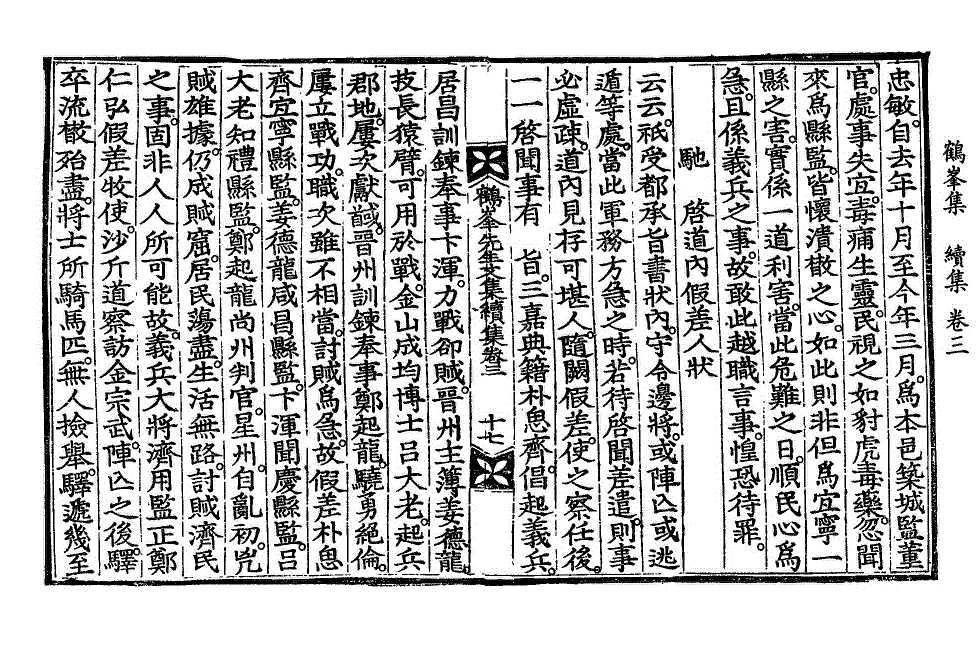 鶴峯集　續集　卷三
忠敏。自去年十月至今年三月。爲本邑築城監董
官。處事失宜。毒痛生靈。民視之如豺虎毒藥。忽聞
來爲縣監。皆懷潰散之心。如此則非但爲宜寧一
縣之害。實係一道利害。當此危難之日。順民心爲
急。且係義兵之事。故敢此越職言事。惶恐待罪。
馳　啓道內假差人狀
云云。祗受都承旨書狀內。守令邊將。或陣亡或逃
遁等處。當此軍務方急之時。若待啓聞差遣。則事
必虛疎。道內見存可堪人。隨闕假差。使之察任後。
一一啓聞事有　旨。三嘉典籍朴思齊。倡起義兵。
鶴峯先生文集續集卷之三　十七
居昌訓鍊奉事卞渾。力戰却賊。晉州主簿姜德龍。
技長猿臂。可用於戰。金山成均博士呂大老。起兵
郡地。屢次獻馘。晉州訓鍊奉事鄭起龍。驍勇絕倫。
屢立戰功。職次雖不相當。討賊爲急。故假差朴思
齊宜寧縣監。姜德龍咸昌縣監。卞渾聞慶縣監。呂
大老知禮縣監。鄭起龍尙州判官。星州自亂初。兇
賊雄據。仍成賊窟。居民蕩盡。生活無路。討賊濟民
之事。固非人人所可能。故義兵大將濟用監正鄭
仁弘假差牧使。沙斤道察訪金宗武。陣亡之後。驛
卒流散殆盡。將士所騎馬匹。無人撿擧。驛遞幾至